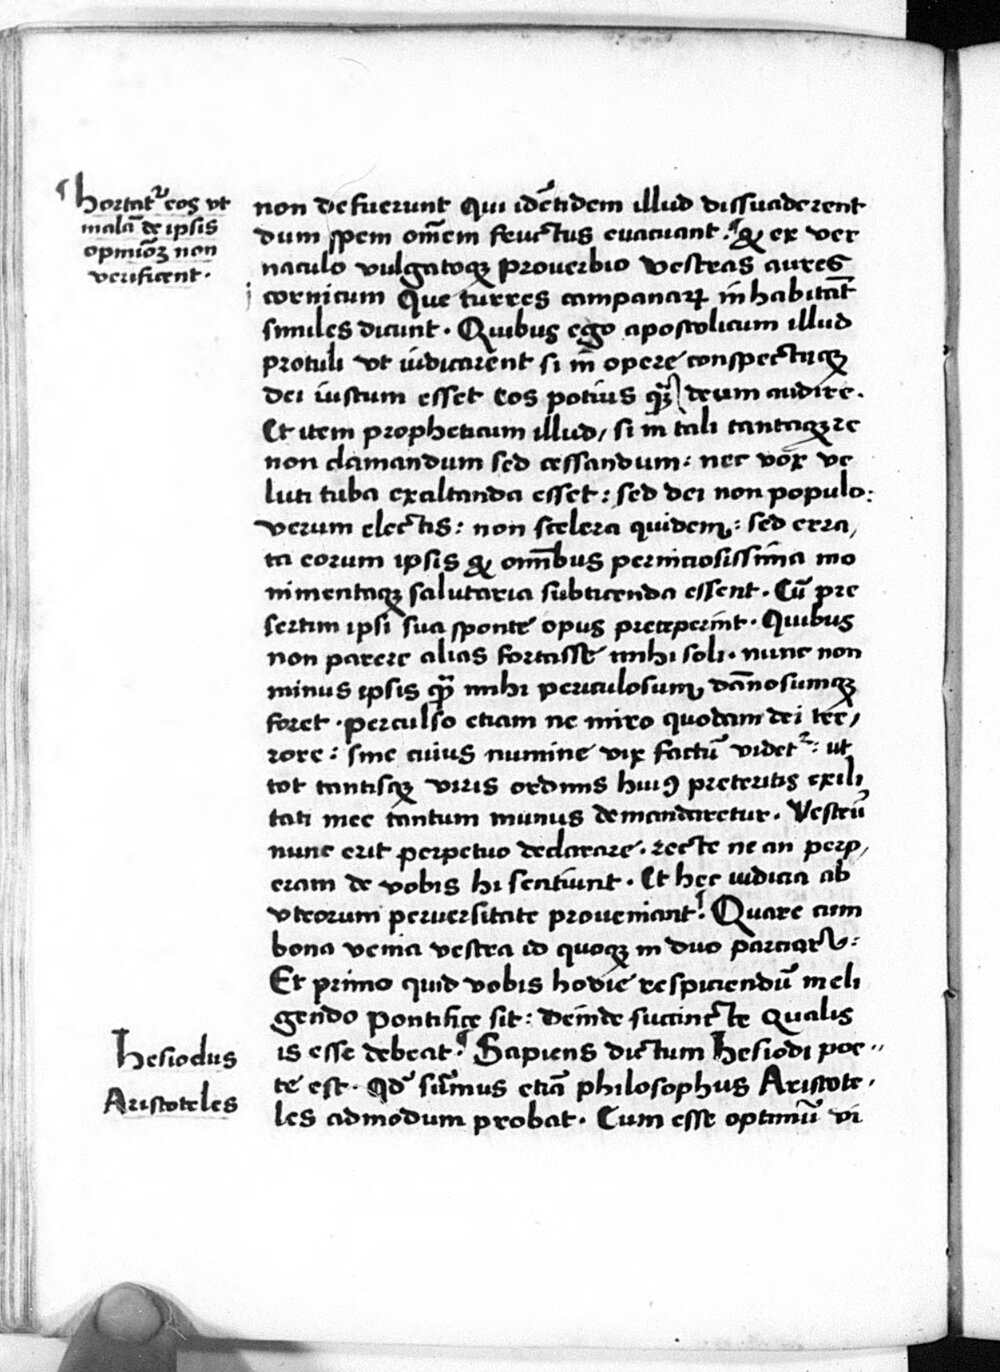 hortat᷑ eos vt
malā de ipsis
opinioꝫ non
verificent·
non defuerunt qui idētidem illud dissuaderent
dum spem om̄em fructus euacuant· & ex ver
naculo vulgatoqꝫ prouerbio vestras aures
cornicum que turres campanarꝝ inhabitāt
similes dicunt· Quibus ego apostolicum illud
protuli vt iudicarent si in opere conspectuqꝫ
dei iustum esset Eos potius qꝫ̄ deum audire·
Et item propheticum illud/ si in tali tantaqꝫ re
non clamandum sed cessandum: nec vox ve
luti tuba exaltanda esset: sed dei non populo:
verum electis: non scelera quidem: sed erra/
ta eorum ipsis & om̄ibus perniciosissima mo
nimentaqꝫ salutaria subticenda essent· Cū pre
sertim ipsi sua sponte opus preceperint· Quibus
non parere alias fortasse mihi soli· nunc non
minus ipsis qꝫ̄ mihi periculosum dānosumqꝫ
foret· perculso etiam ne miro quodam dei ter/
rore: sine cuius numine vix factū videt᷑: ut
tot tantisqꝫ viris ordinis huiꝰ preteritis exili
tati mee tantum munus demandaretur· Vestrū
nunc erit perpetuo declarare· recte ne an perp/
eram de vobis hi sentiunt· Et hec iudicia ab
vteorum peruersitate proueniant! Quare cum
bona venia vestra id quoqꝫ in duo parciar᷑:
Et primo quid vobis hodie respiciendū in eli
gendo pontifice sit: deinde succincte qualis
is esse debeat· Sapiens dictum Hesiodi poe-
te est· Qd̄ sum̄mus etiā philosophus Aristote·
les admodum probat· Cum esse optimū vi
Hesiodus
Aristoteles